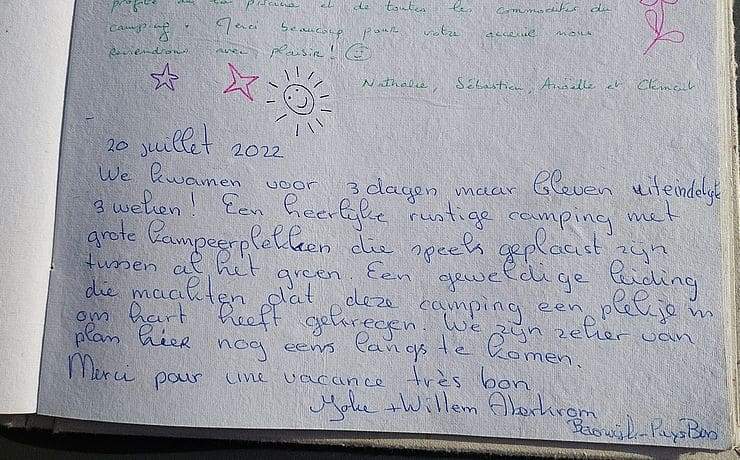 profité de la piscine et de toutes les commodités du
camping. Merci beaucoup pour votre acceuil nous
reviendrons avec plaisir!
Nathalie, Sébastien, Anaëlle et Clément
20 juillet 2022
We kwamen voor 3 dagen maar bleven uiteindelijk
3 weken! Een heerlijke rustige camping met
grote kampeerplekken die speels geplaatst zijn
tussen al het groen. Een geweldige leiding
die maakten dat deze camping een plekje in
om hart heeft gekregen. We zijn zeker van
plan hier nog eens langs te komen.
Merci pour une vacance très bon
+ Willem
Pays Bas